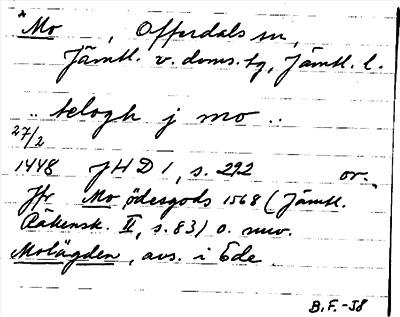 *Mo, Offerdals sn,
Jämtl. v. doms. tg, Jämtl. l.
.. telogh j mo ..
27/2
1448 JHD 1, s. 292 or.
Jfr Mo ödesgods 1568 (Jämtl.
Räkensk. II, s. 83) o. nuv.
Molägden, avs. i Ede
B.F.-58